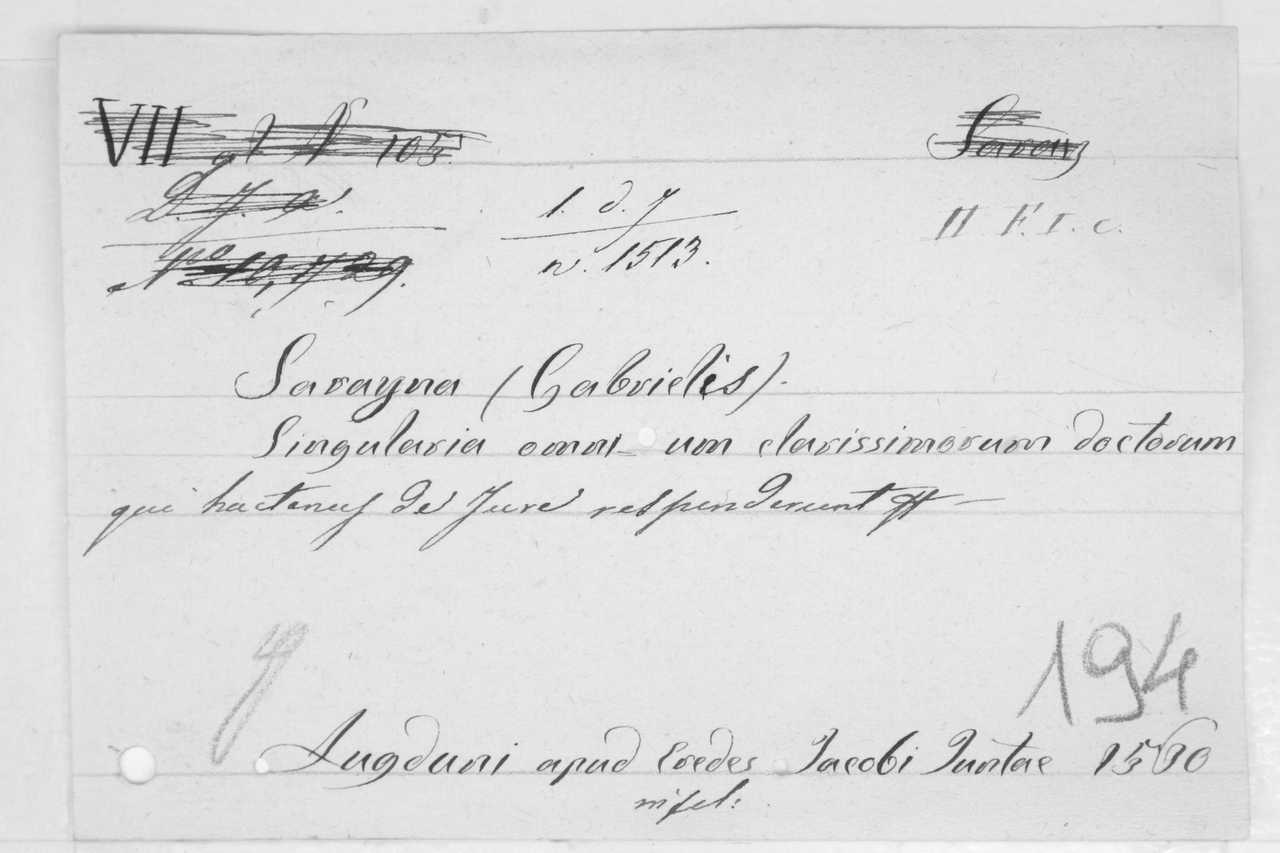 VII gl N 105
Sarayn
D. J. g.
1. d. J
H F. I. c.
No 10,
n. 1513.
Sarayna (Gabrielis).
Singularia omni um clarissimorum doctorum
qui hactenus de Jure responderunt
194
Lugduni apud eredes Jacobi Juntae 1560
in fol: